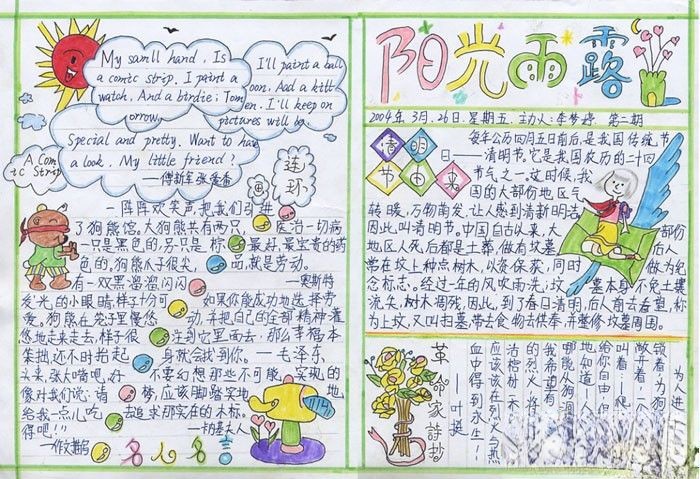 My samll hand. Is
a comic strip. I paint a
watch. And a birdie; Tom
orrow.
I'll paint a ball
oon. Aad a kitt
en. I'll keep on
pictures will be
Special and pretty. Want to have
a look. My little friend?
A Com
ic Strip
连
环
画
一阵阵欢笑声,把我们引进
了狗熊馆。大狗熊共有两只。
一只是黑色的,另一只是棕
色的。狗熊爪子很尖,
有一双黑溜溜闪闪
发光的小眼睛,样子十分可
爱。狗熊在笼子里慢悠
悠地走来走去,样子很
笨拙,还不时抬起
头来,张大嘴吧,好
像对我们说:请
给我一点儿吃
得吧!!
医治一切病
最好、最宝贵的药
品,就是劳动。
—奥斯特
如果你能成功地选择劳
动,并把自己的全部精神灌
注到它里面去,那么幸福本
身就会找到你。—毛泽东
不要幻想那些不可能实现的
梦,应该脚踏实地地
去追求那实在的木标。
名人名言
阳光雨露
2004年3月26日 星期五 主力人:李梦婷 第二期
清明
节由来
每年公历四月五日前后,是我国传统节
日——清明节。它是我国农历的二十四
节气之一。这时候,我
国的大部份地区气
转暖,万物萌发,让人感到清新明洁
因此叫清明节。中国自古以来,大部份
地区人死后都是土葬,做有坟墓。后人
常在坟上种点树木,以资保荻,同时做为纪
念标志。经过一年的风吹雨洗,坟墓本身不免土壤
流失,树木凋残。因此,到了春日清明,后人前去看望,称
为上坟,又叫扫墓,带去食物去供奉,并整修坟墓周围。
革命家詩抄
——叶挺
为人进
锁着!为狗
敞着!一个
叫着:一爬
给你自由!
地知道—人
哪能从狗洞
我希望有
的烈火将
沽棺材一
应该在烈火与热
血中得到永生!